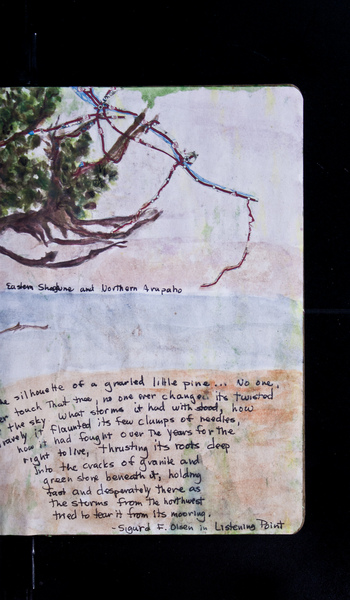 Eastern Shoshone and Northern Arapaho
he silhouette of a gnarled little pine... No one,
er touch That tree, no one ever changed its twisted
the sky What storms it had withstood, how
ravely it flaunted its few clumps of needles,
how it had fought over the years for the
right to live, thrusting its roots deep
into the cracks of granite and
green stone beneath it, holding
fast and desperately there as
the storms from the northwest
tried to tear it from its mooring.
-Sigurd F. Olsen in Listening Point